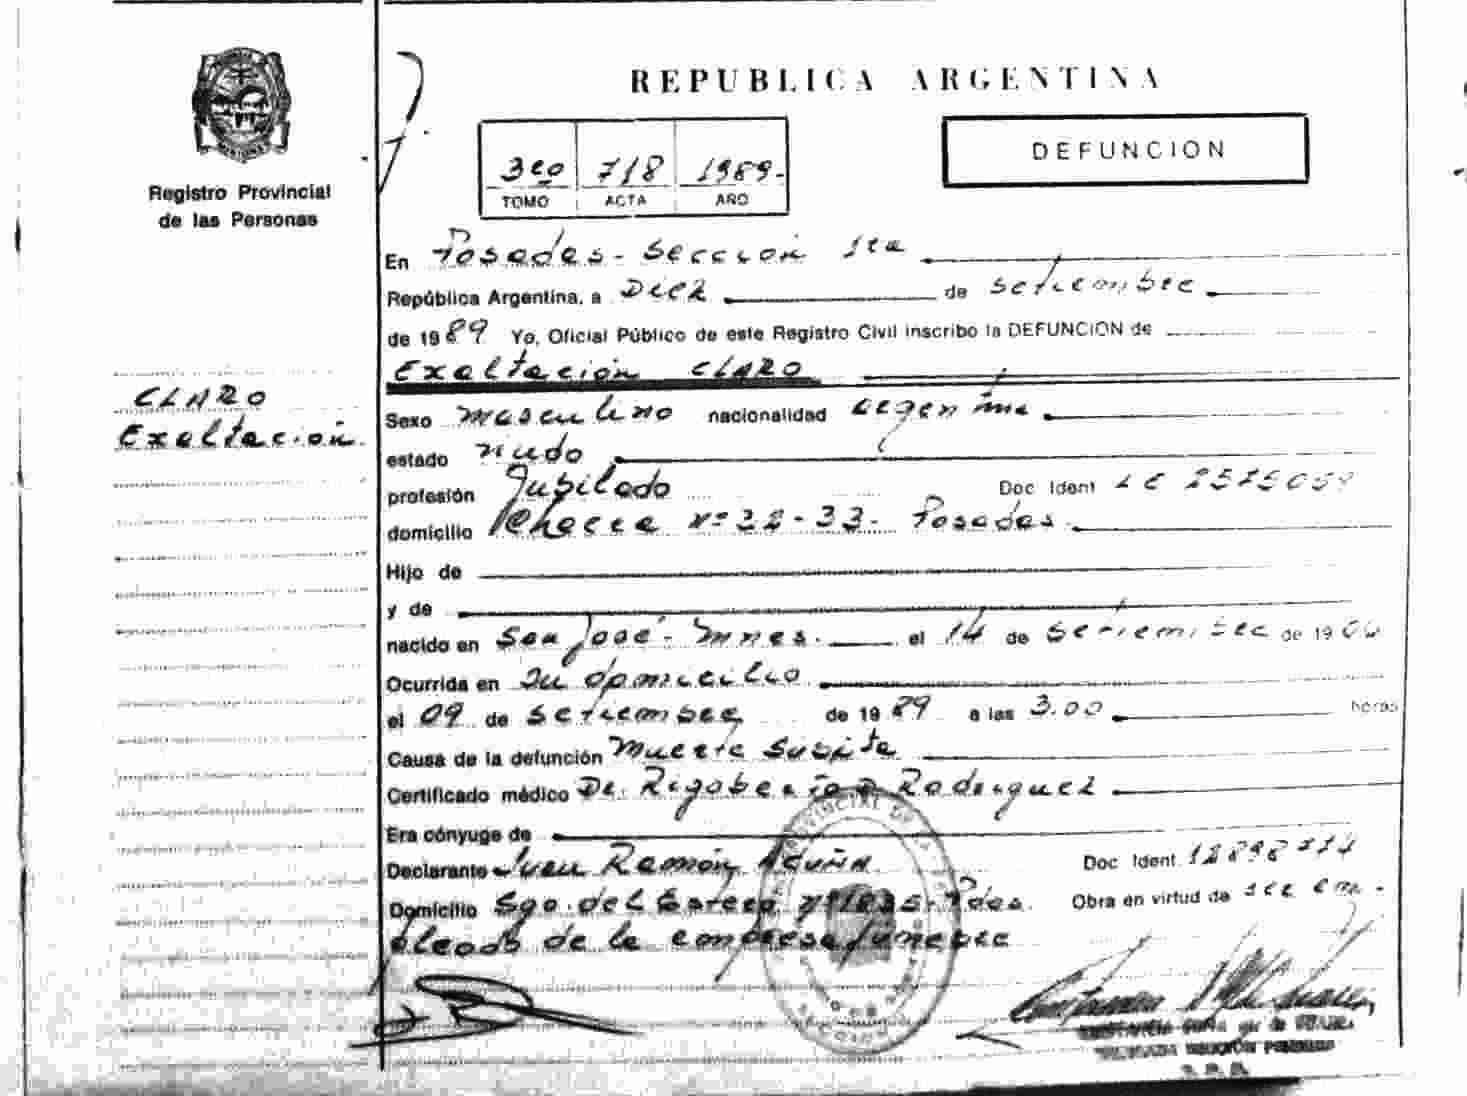 REPUBLICA ARGENTINA
DEFUNCION
3ro 718 1989.-
TOMO ACTA AÑO
MISIONES
Registro Provincial
de las Personas
CLARO
Exaltación.
En Posadas - Sección 1ra
República Argentina, a Diez de setiembre
de 1989 Yo, Oficial Público de este Registro Civil inscribo la DEFUNCION de
Exaltación CLARO
Sexo masculino nacionalidad argentina
estado viudo
profesión Jubilado Doc Ident
domicilio Nº 32-33- Posadas.
Hijo de
y de
nacido en San José - Mnes. el 14 de setiembre de 19
Ocurrida en Su domicilio
el 09 de setiembre de 1989 a las 3.00 horas
Causa de la defunción Muerte Subita
Certificado médico Dr. Rigoberto Rodriguez
Era cónyuge de
Declarante Ramón Acuña Doc Ident.
Domicilio Sgo. del Estero Pdas. Obra en virtud de ser em-
pleado de la empresa funebre